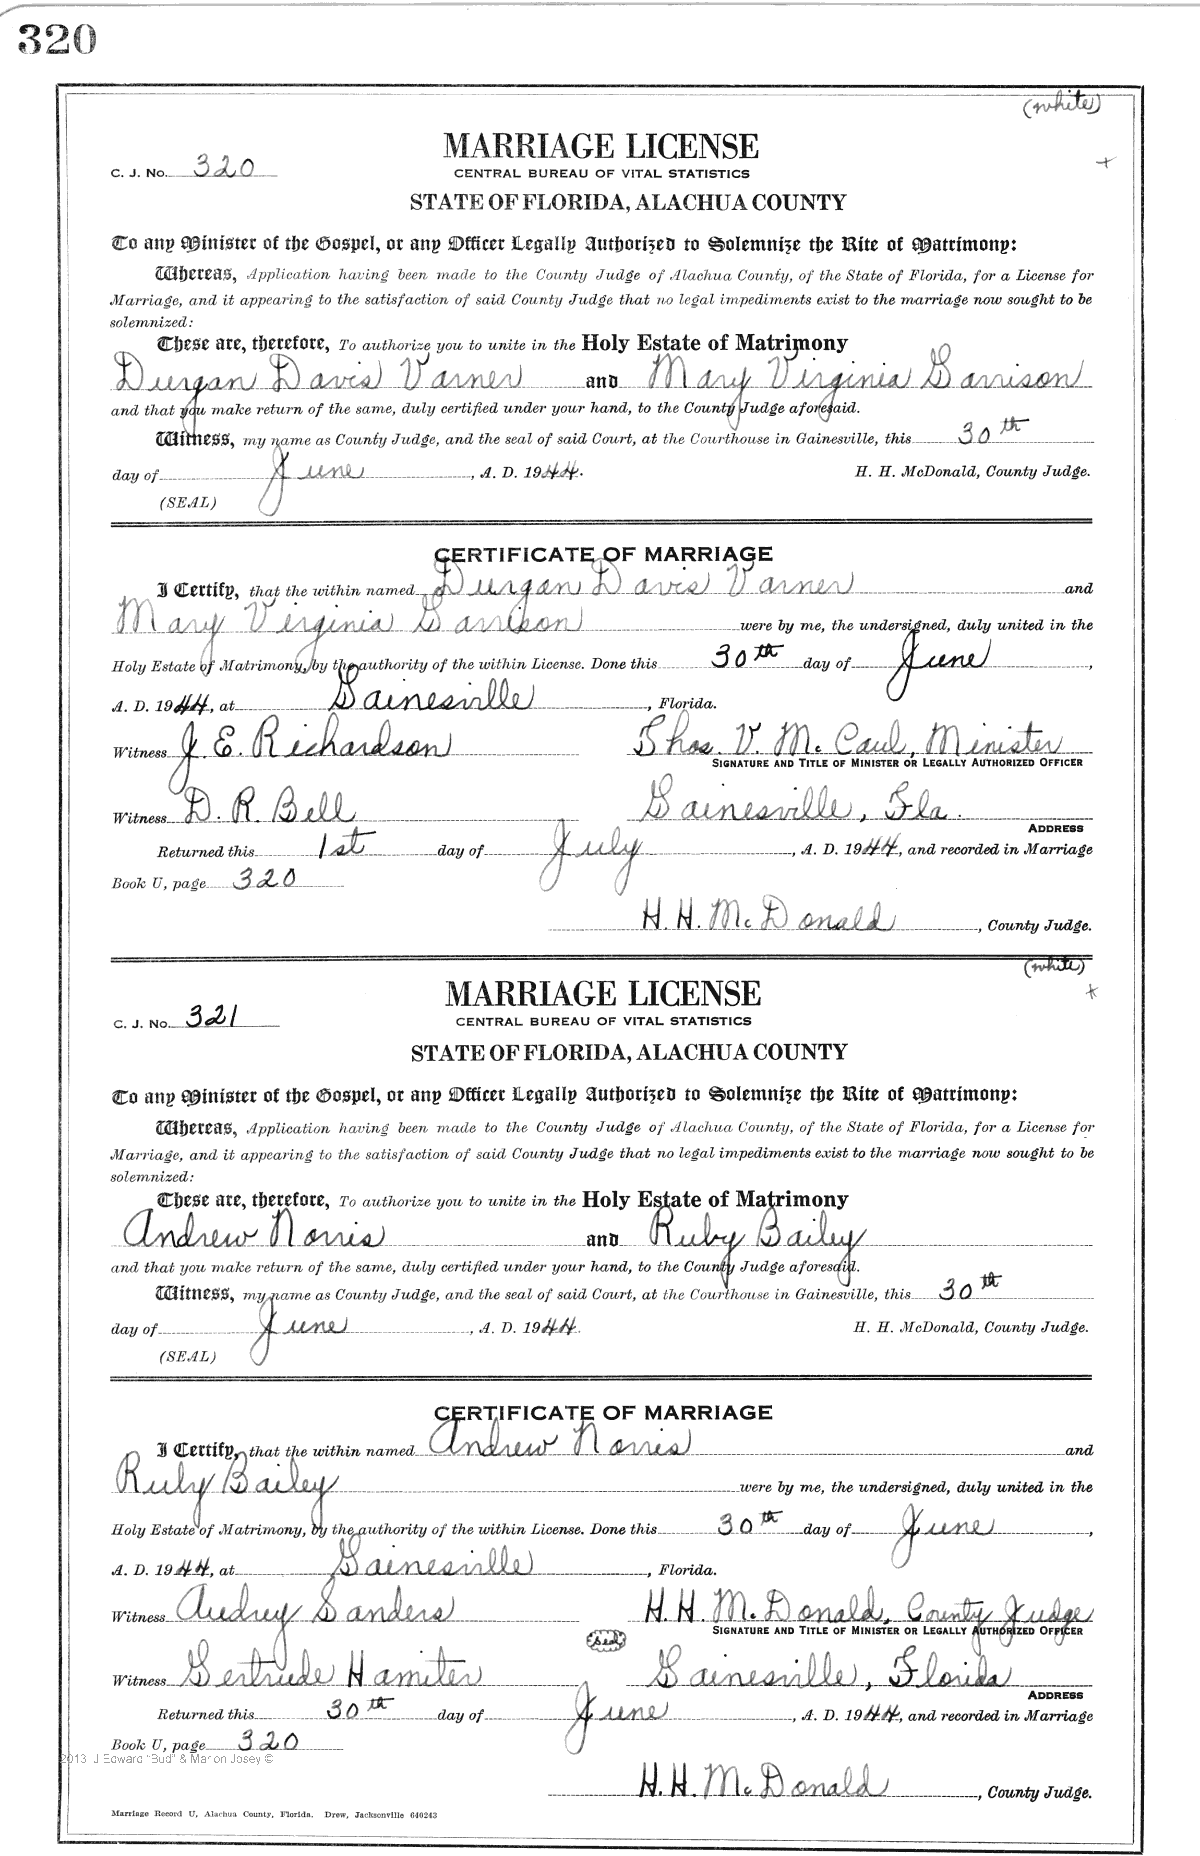 320
(white)
MARRIAGE LICENSE
+
C. J. No. 320
CENTRAL BUREAU OF VITAL STATISTICS
STATE OF FLORIDA, ALACHUA COUNTY
To any Minister of the Gospel, or any Officer Legally Authorized to Solemnize the Rite of Matrimony:
Whereas, Application having been made to the County Judge of Alachua County, of the State of Florida, for a License for
Marriage, and it appearing to the satisfaction of said County Judge that no legal impediments exist to the marriage now sought to be
solemnized:
These are, therefore, To authorize you to unite in the Holy Estate of Matrimony
Durgan Davis Varner and Mary Virginia Garrison
and that you make return of the same, duly certified under your hand, to the County Judge aforesaid.
Witness, my name as County Judge, and the seal of said Court, at the Courthouse in Gainesville, this 30th
day of June, A. D. 1944. H. H. McDonald, County Judge.
(SEAL)
CERTIFICATE OF MARRIAGE
I Certify, that the within named Durgan Davis Varner and
Mary Virginia Garrison were by me, the undersigned, duly united in the
Holy Estate of Matrimony, by the authority of the within License. Done this 30th day of June,
A. D. 1944, at Gainesville, Florida.
Witness J. E. Richardson Thos. V. McCaul, Minister
SIGNATURE AND TITLE OF MINISTER OR LEGALLY AUTHORIZED OFFICER
Witness D. R. Bell Gainesville, Fla.
ADDRESS
Returned this 1st day of July, A. D. 1944, and recorded in Marriage
Book U, page 320
H. H. McDonald, County Judge.
(white)
MARRIAGE LICENSE
+
C. J. No. 321
CENTRAL BUREAU OF VITAL STATISTICS
STATE OF FLORIDA, ALACHUA COUNTY
To any Minister of the Gospel, or any Officer Legally Authorized to Solemnize the Rite of Matrimony:
Whereas, Application having been made to the County Judge of Alachua County, of the State of Florida, for a License for
Marriage, and it appearing to the satisfaction of said County Judge that no legal impediments exist to the marriage now sought to be
solemnized:
These are, therefore, To authorize you to unite in the Holy Estate of Matrimony
Andrew Norris and Ruby Bailey
and that you make return of the same, duly certified under your hand, to the County Judge aforesaid.
Witness, my name as County Judge, and the seal of said Court, at the Courthouse in Gainesville, this 30th
day of June, A. D. 1944. H. H. McDonald, County Judge.
(SEAL)
CERTIFICATE OF MARRIAGE
I Certify, that the within named Andrew Norris and
Ruby Bailey were by me, the undersigned, duly united in the
Holy Estate of Matrimony, by the authority of the within License. Done this 30th day of June,
A. D. 1944, at Gainesville, Florida.
Witness Audrey Sanders H. H. McDonald, County Judge
SIGNATURE AND TITLE OF MINISTER OR LEGALLY AUTHORIZED OFFICER
Seal
Witness Gertrude Hamiter Gainesville, Florida
ADDRESS
Returned this 30th day of June, A. D. 1944, and recorded in Marriage
Book U, page 320
2013 J Edward "Bud" & Marion Josey ©
H. H. McDonald, County Judge.
Marriage Record U, Alachua County, Florida. Drew, Jacksonville 640243